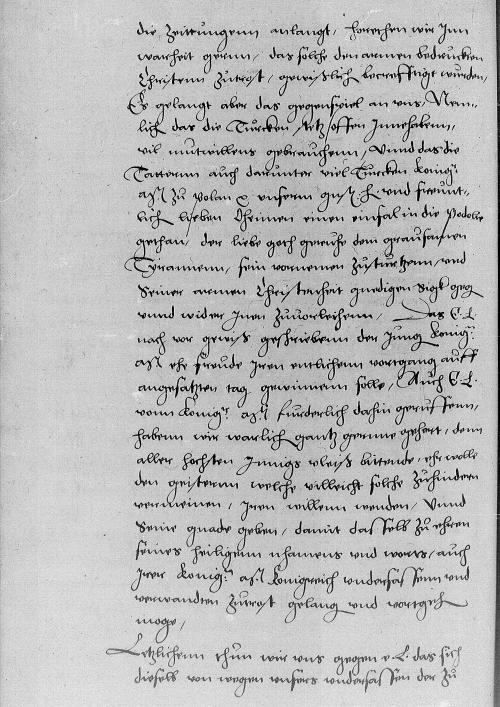 die Zeittungenn anlangt, horethen wir Inn
warheit gernn, das solche den armen bedruckten
Christenn zutrost, gewißlich becrefftigt wurden,
Es gelangt aber das gegenspiel an uns, Nem-
lich das die Turcken, Ofen Innehabenn,
vil mutwillens gebrauchenn, Unnd das die
Tattarnn auch darunter viel Turcken Konigr
at zu Polan x unsernn gst h und freunt-
lich lieben Oheimen einen einfal in die Podolie
gethan, der liebe goth geruhe dem grausamen
Tyrannenn, sein vornemen zusturtzenn, und
Seiner armen Christenheit gnedigen Sigk gegen
unnd wider Inen zuvorleihenn, Das E L
nach vor gewis geschriebenn der Jung Konigr
at ehr freude Iren entlichenn vortgang auff
angesatzten tag gewinnenn solle, Auch E L
vom Konigr at furderlich dahin geruffenn,
habenn wir warlich gantz gernne gehort, denn
aller hochsten Innigs vleiß bittende, ehr wolle
den geisternn welche villeicht solche zuhindern
vermeinen, Iren willenn wenden, Unnd
Seine gnade geben, damit dasselb zu ehren
seines heiligenn nhamens und worts, auch
Irer Konigr at Konigreich undersassenn und
verwandten zutrost gelang und vortgeh
moge,
Letzlichenn thun wir uns gegen e L das sich
dieselb von wegen unsers undersassen der zu